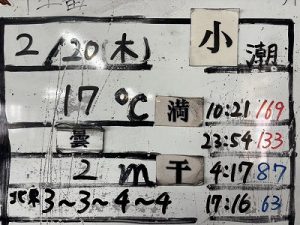 2/20(木) 小潮
17℃ 満 10:21 169
曇 23:54 133
2m 干 4:17 87
北東 3〜3〜4〜4 17:16 63